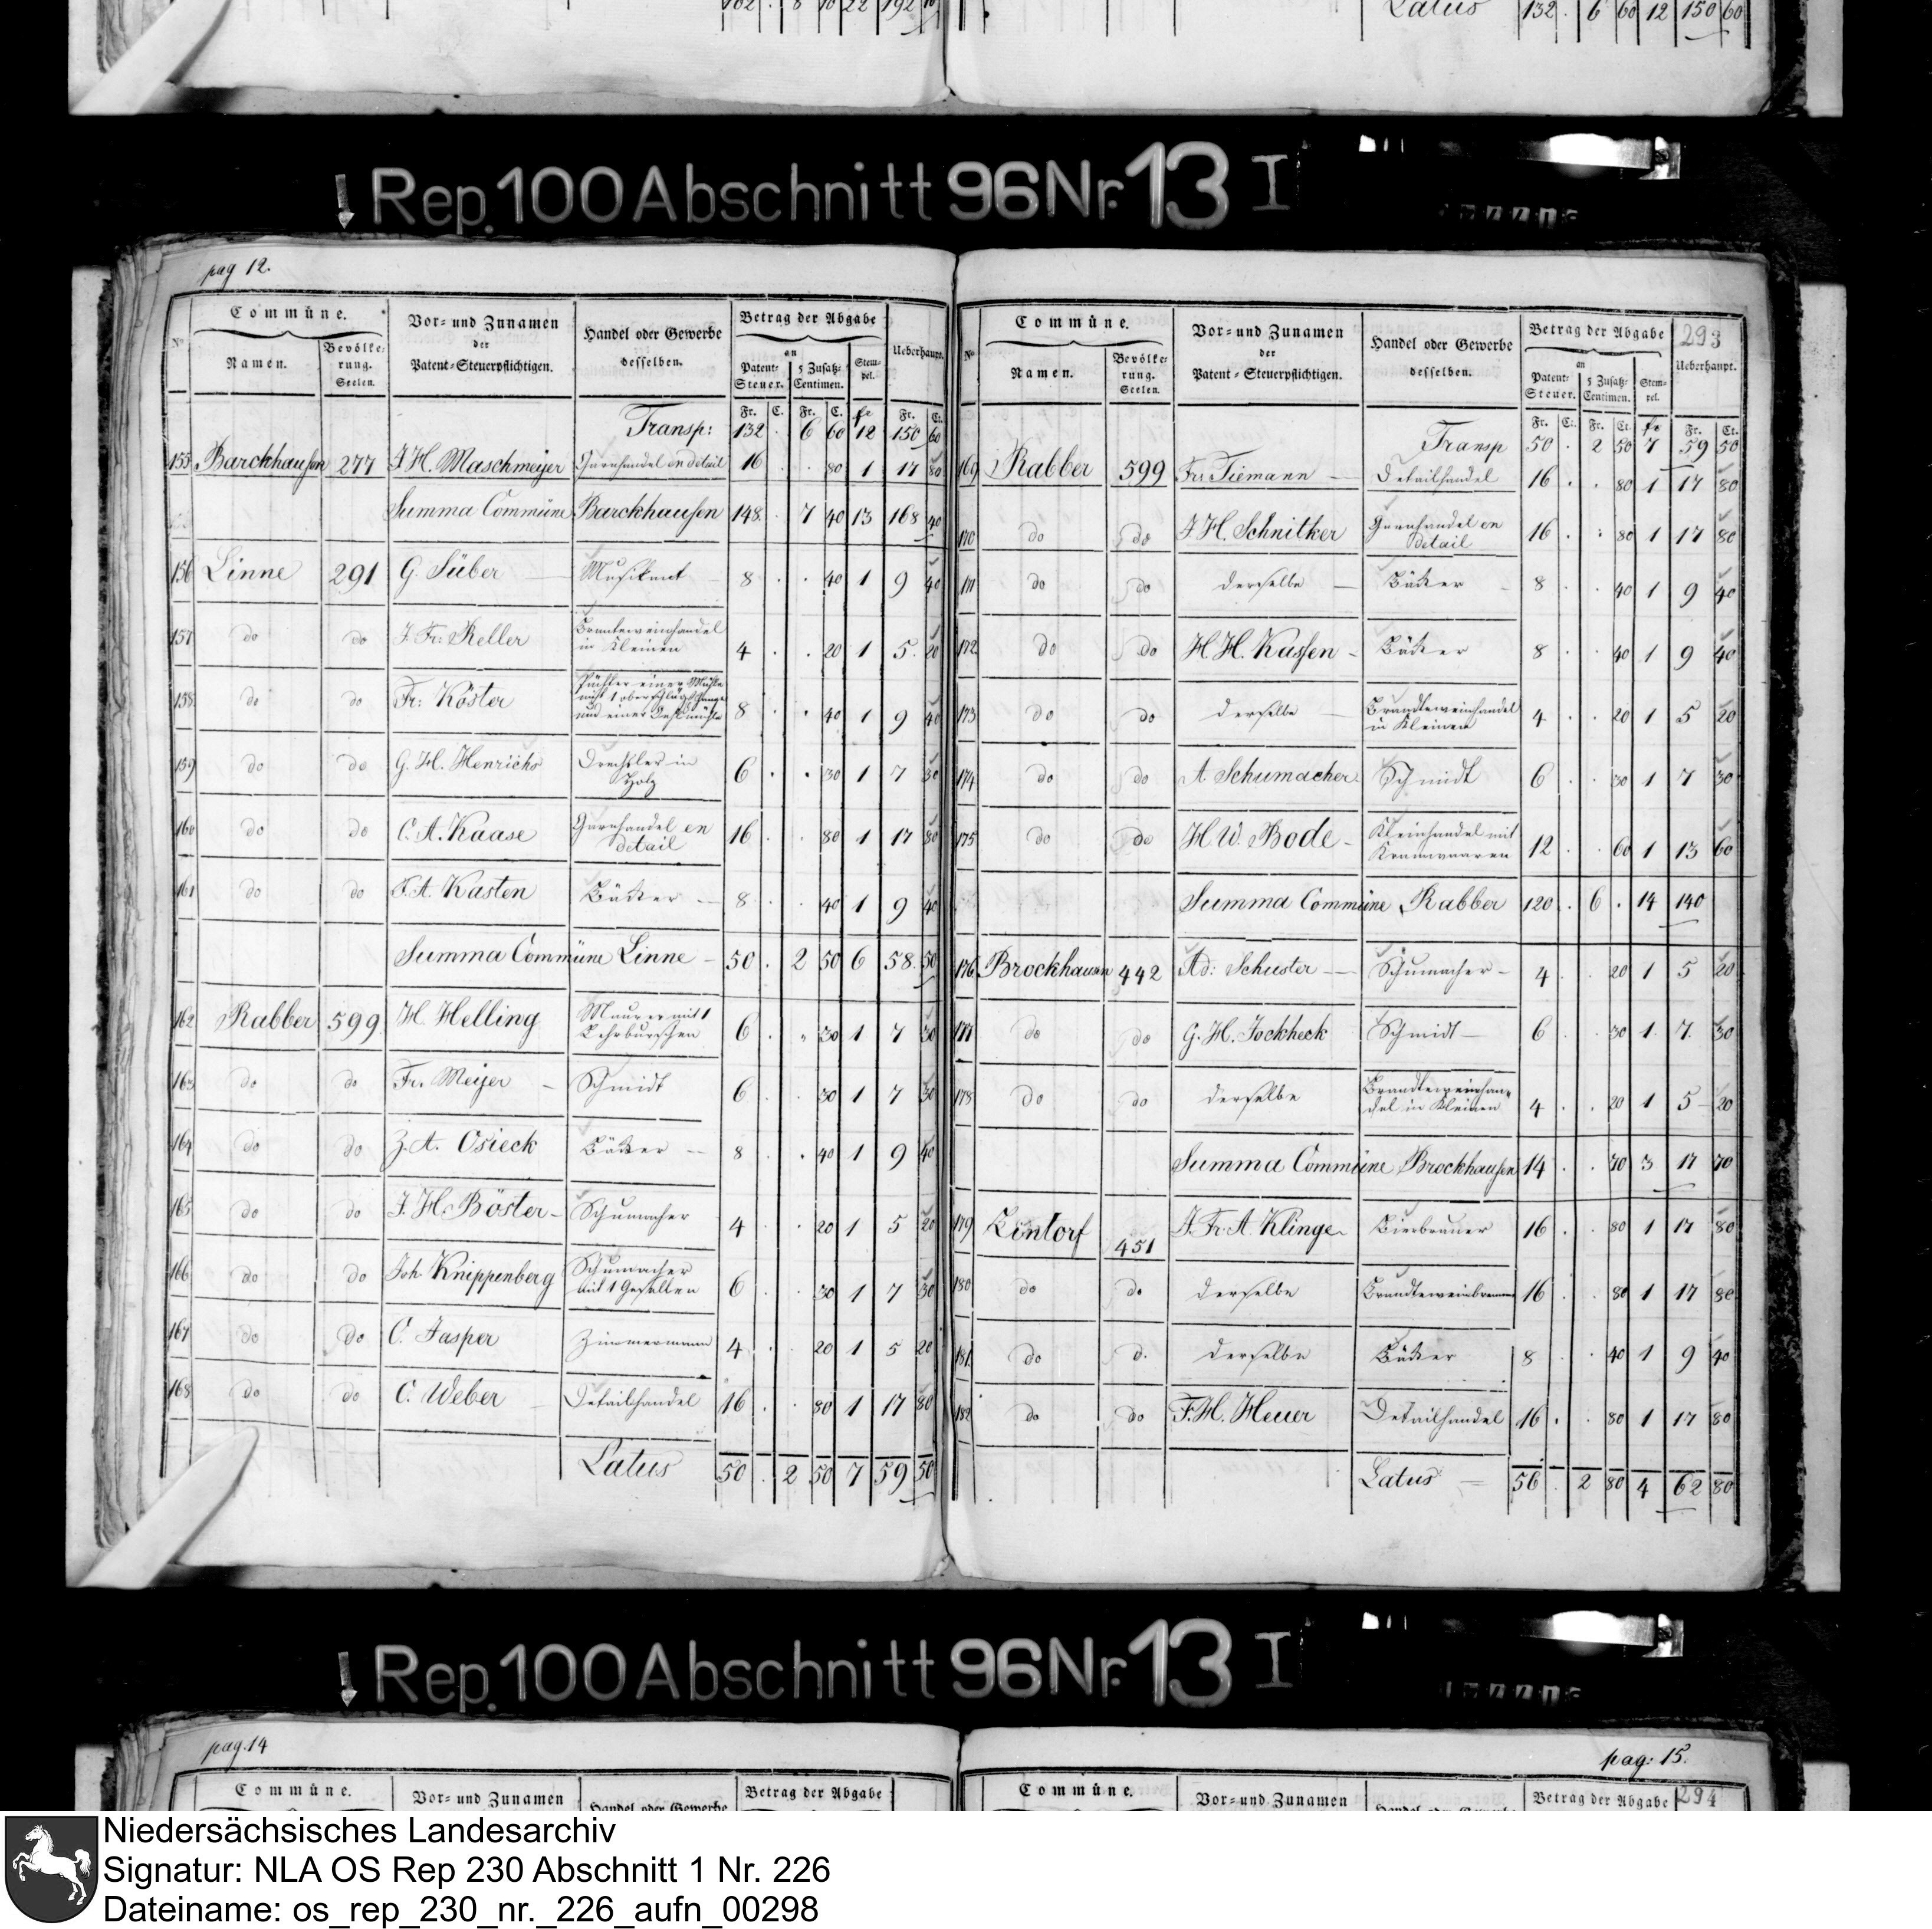 102 . 8 10 22 192 10
Latus 132 . 6 60 12 150 60
Rep. 100 Abschnitt 96 Nr. 13 I
pag 12.
Commüne. Vor- und Zunamen der Patent-Steuerpflichtigen. Handel oder Gewerbe desselben. Betrag der Abgabe
No Namen. Bevölkerung. Seelen. an Patent-Steuer. 5 Zusatz-Centimen. Stempel. Ueberhaupt.
Fr. C. Fr. C. fr Fr. Ct.
Transp: 132 . 6 60 12 150 60
155 Barckhausen 277 J H. Maschmeijer Garnhandel en detail 16 . . 80 1 17 80
Summa Commüne Barckhausen 148 . 7 40 13 168 40
156 Linne 291 G. Süber Musikant 8 . . 40 1 9 40
157 do do J. Fr: Keller Branteweinhandel
in Kleinen 4 . . 20 1 5 20
158 do do Fr: Köster Pächter einer Mühle
mit 1 oberschlägt Gange
und einer Oehlmühle 8 . . 40 1 9 40
159 do do G. H. Henrichs Drechsler in
Holz 6 . . 30 1 7 30
160 do do C. A. Kaase Garnhandel en
detail 16 . . 80 1 17 80
161 do do F. A. Kasten Bäcker 8 . . 40 1 9 40
Summa Commüne Linne 50 . 2 50 6 58 50
162 Rabber 599 H. Helling Maurer mit 1
Lehrburschen 6 . . 30 1 7 30
163 do do Fr. Meijer Schmidt 6 . . 30 1 7 30
164 do do Z. A. Osieck Bäcker 8 . . 40 1 9 40
165 do do J. H. Böster Schumacher 4 . . 20 1 5 20
166 do do Joh. Knippenberg Schumacher
mit 1 Gesellen 6 . . 30 1 7 30
167 do do C. Jasper Zimmermann 4 . . 20 1 5 20
168 do do C. Weber Detailhandel 16 . . 80 1 17 80
Latus 50 . 2 50 7 59 50
293
Commüne. Vor- und Zunamen der Patent-Steuerpflichtigen. Handel oder Gewerbe desselben. Betrag der Abgabe
No Namen. Bevölkerung. Seelen. an Patent-Steuer. 5 Zusatz-Centimen. Stempel. Ueberhaupt.
Fr. Ct. Fr. Ct. fr Fr. Ct.
Transp 50 . 2 50 7 59 50
169 Rabber 599 Fr: Tiemann Detailhandel 16 . . 80 1 17 80
170 do do J. H. Schnitker Garnhandel en
detail 16 . . 80 1 17 80
171 do do derselbe Bäcker 8 . . 40 1 9 40
172 do do H. H. Kassen Bäcker 8 . . 40 1 9 40
173 do do derselbe Brandteweinhandel
in Kleinen 4 . . 20 1 5 20
174 do do A. Schumacher Schmidt 6 . . 30 1 7 30
175 do do H. W. Bode Kleinhandel mit
Kramwaaren 12 . . 60 1 13 60
Summa Commüne Rabber 120 . 6 . 14 140
176 Brockhausen 442 Ad: Schuster Schumacher 4 . . 20 1 5 20
177 do do G. H. Jockheck Schmidt 6 . . 30 1 7 30
178 do do derselbe Brandteweinhan-
del in Kleinen 4 . . 20 1 5 20
Summa Commüne Brockhausen 14 . . 70 3 17 70
179 Lintorf 451 J. Fr. A. Klinge Bierbrauer 16 . . 80 1 17 80
180 do do derselbe Brandteweinbrenner 16 . . 80 1 17 80
181 do d. derselbe Bäcker 8 . . 40 1 9 40
182 do do F. H. Heuer Detailhandel 16 . . 80 1 17 80
Latus 56 . 2 80 4 62 80
Rep. 100 Abschnitt 96 Nr. 13 I
pag. 14
Commüne. Vor- und Zunamen Handel oder Gewerbe Betrag der Abgabe
pag: 15.
Commüne. Vor- und Zunamen Betrag der Abgabe 294
Niedersächsisches Landesarchiv
Signatur: NLA OS Rep 230 Abschnitt 1 Nr. 226
Dateiname: os_rep_230_nr._226_aufn_00298